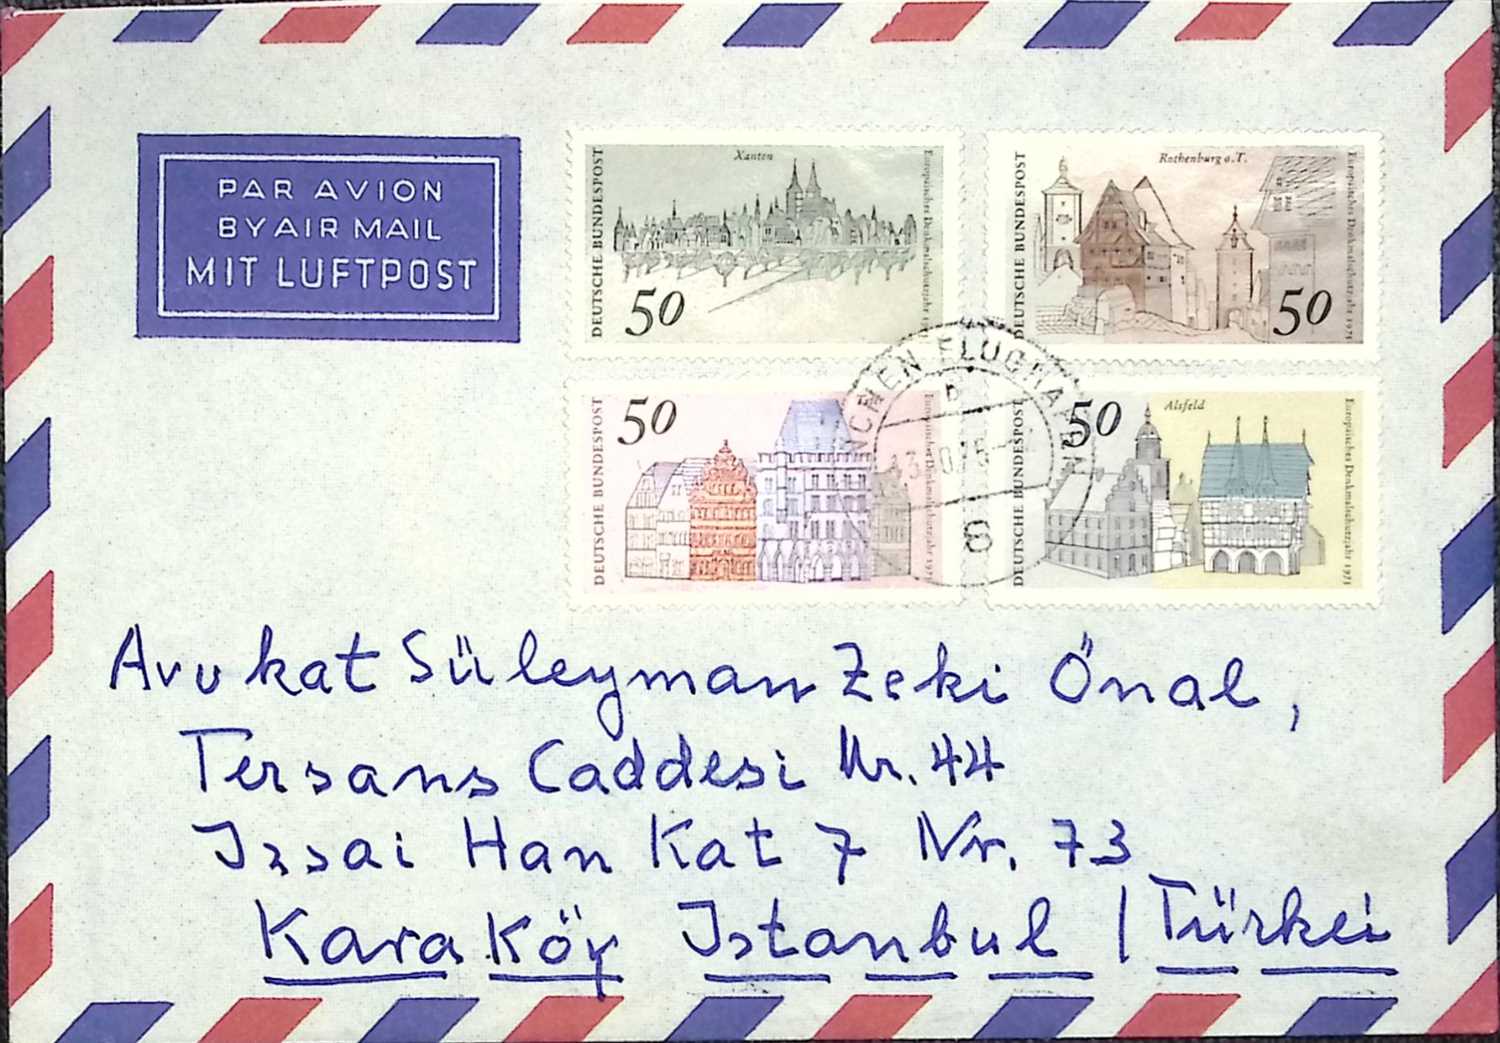 PAR AVION
BY AIR MAIL
MIT LUFTPOST
DEUTSCHE BUNDESPOST
Xanten
Europäisches Denkmalschutzjahr
50
DEUTSCHE BUNDESPOST
Rothenburg o.T.
Europäisches Denkmalschutzjahr 1975
50
DEUTSCHE BUNDESPOST
50
Europäisches Denkmalschutzjahr 1975
DEUTSCHE BUNDESPOST
50
Alsfeld
Europäisches Denkmalschutzjahr 1975
NCHEN FLUGHAFEN
8
Avukat Süleyman Zeki Önal,
Tersans Caddesi Nr. 44
Issai Han Kat 7 Nr. 73
Karaköy Istanbul / Türkei